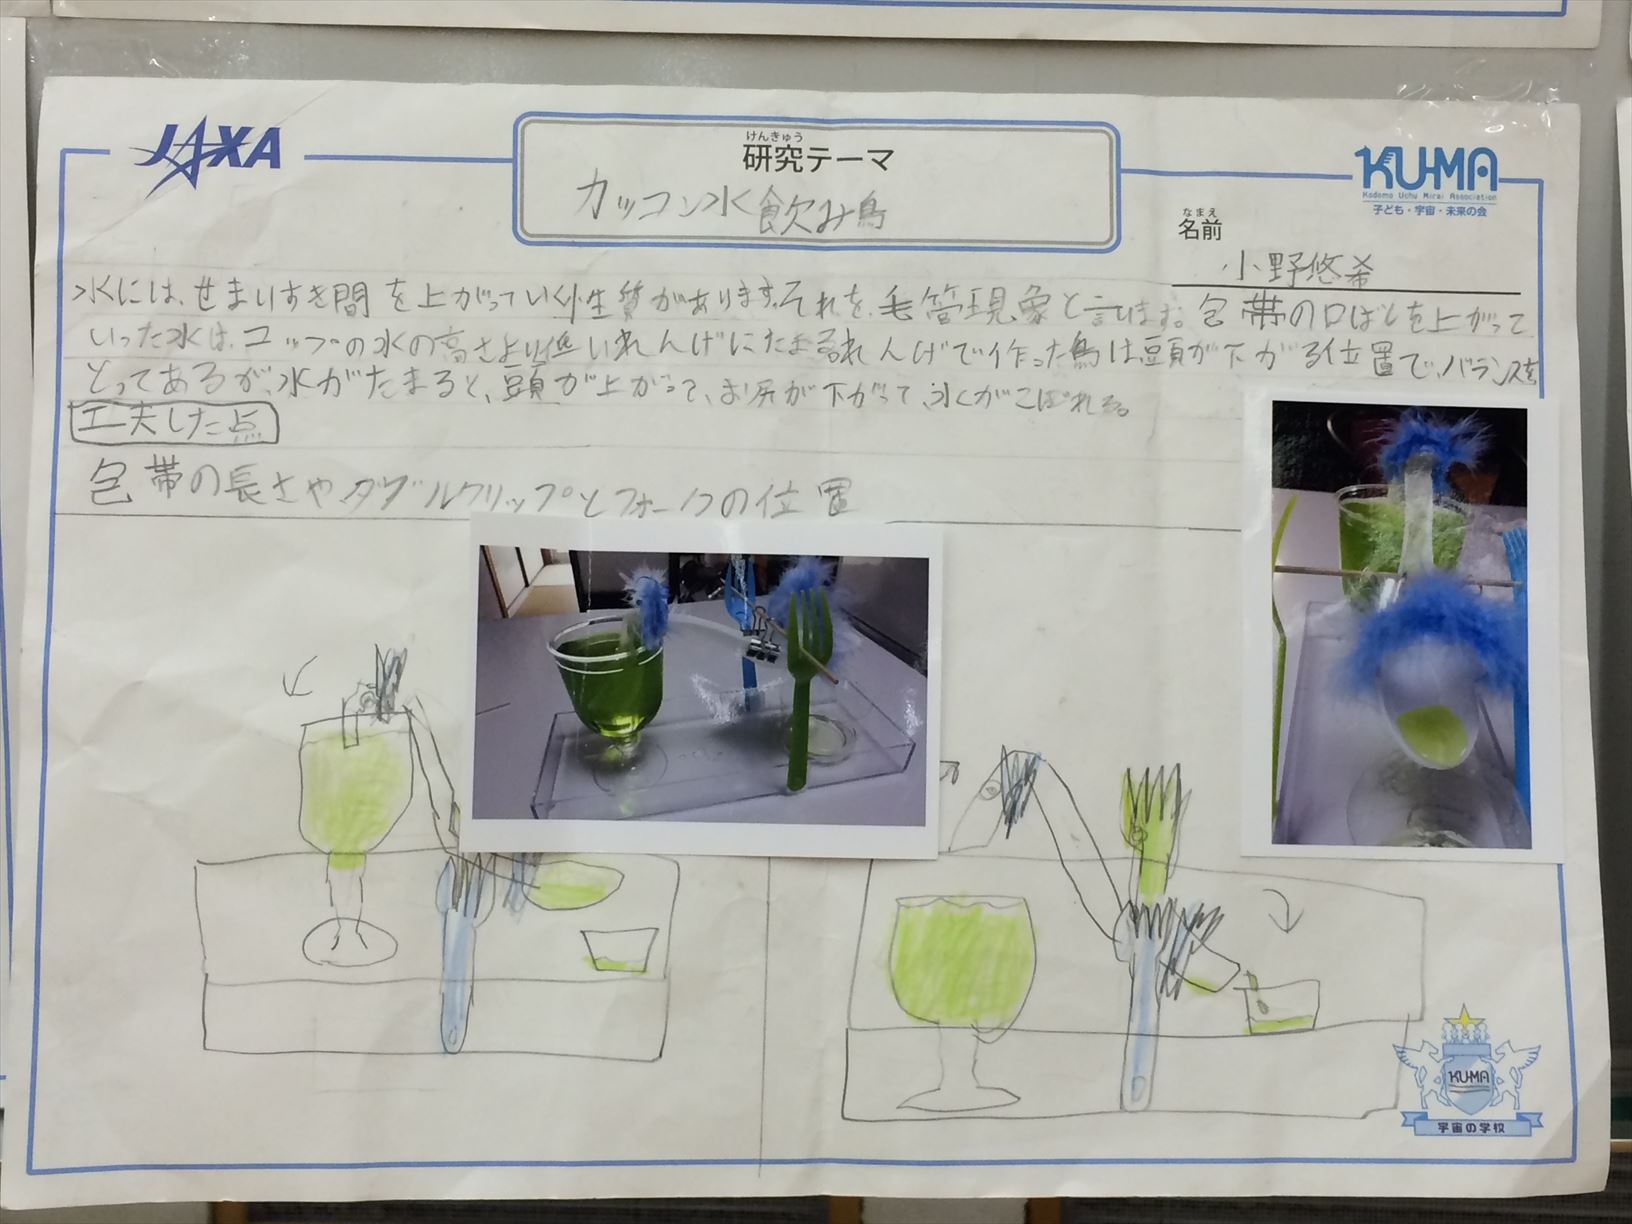 JAXA
けんきゅう
研究テーマ
カッコン水飲み鳥
KU-MA
Kodomo Uchu Mirai Association
子ども・宇宙・未来の会
なまえ
名前
小野悠希
水には、せまいすき間を上がっていく性質があります。それを、毛管現象と言います。包帯の口ばしを上がって
いった水は、コップの水の高さより低いれんげにたまる。れんげで作った鳥は頭が下がる位置で、バランスを
とってあるが、水がたまると、頭が上がって、お尻が下がって、水がこぼれる。
工夫した点
包帯の長さや、ダブルクリップとフォークの位置
KU-MA
宇宙の学校